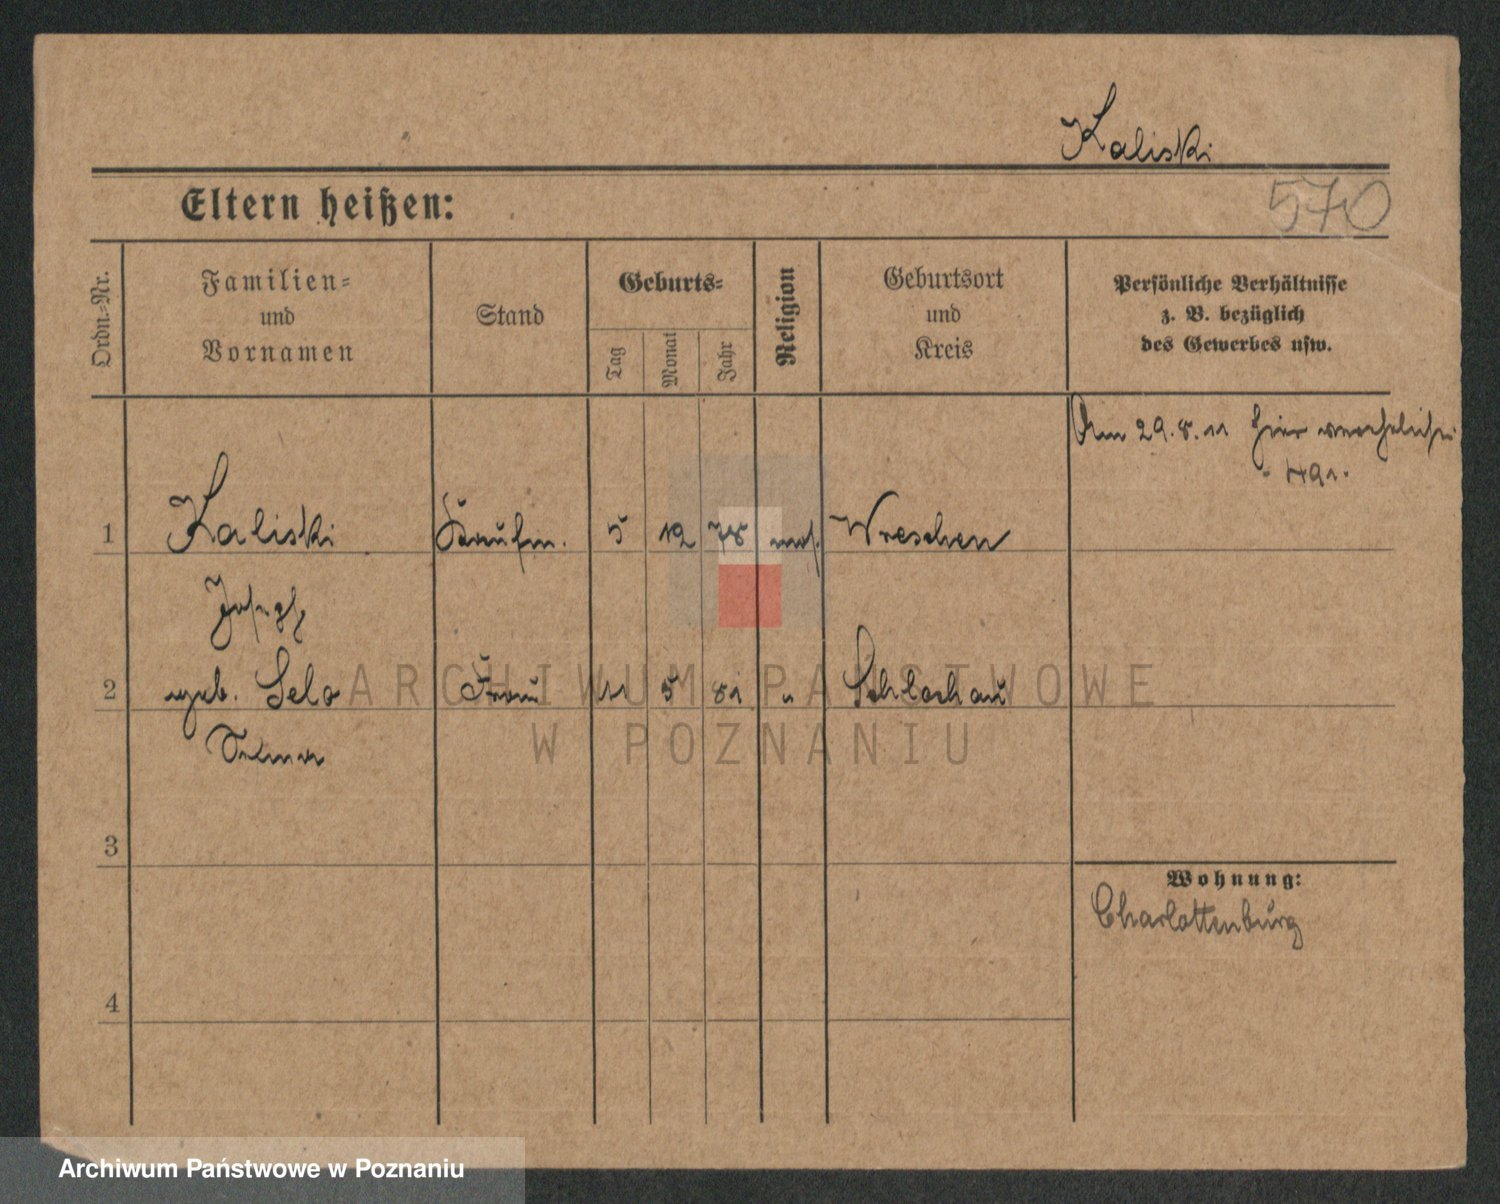 Kaliski
570
Eltern heißen:
Ordn.-Nr.
Familien-
und
Vornamen
Stand
Geburts-
Tag
Monat
Jahr
Religion
Geburtsort
und
Kreis
Persönliche Verhältnisse
z. B. bezüglich
des Gewerbes usw.
Am 29.8.11 hier verehelicht
1 Kaliski Kaufm. 5 12 78 mos. Wreschen
Joseph
2 geb. Selo Frau 11 5 81 " Schlochau
Selma
3
Wohnung:
Charlottenburg
4
ARCHIWUM PAŃSTWOWE
W POZNANIU
Archiwum Państwowe w Poznaniu